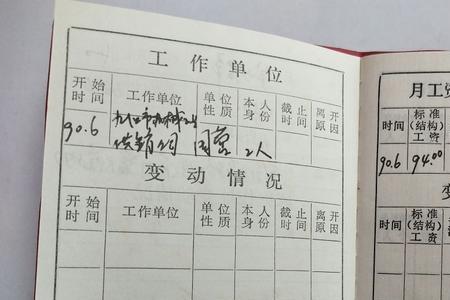 工作单位
开始时间 工作单位 单位性质 本人身份 截止时间 离开原因
90.6 九江市机械工业供销公司 国营 工人
变动情况
开始时间 工作单位 单位性质 本人身份 截止时间 离开原因
月工资
时间 标准(结构)工资
90.6 94.00
时间 标准(结构)工资